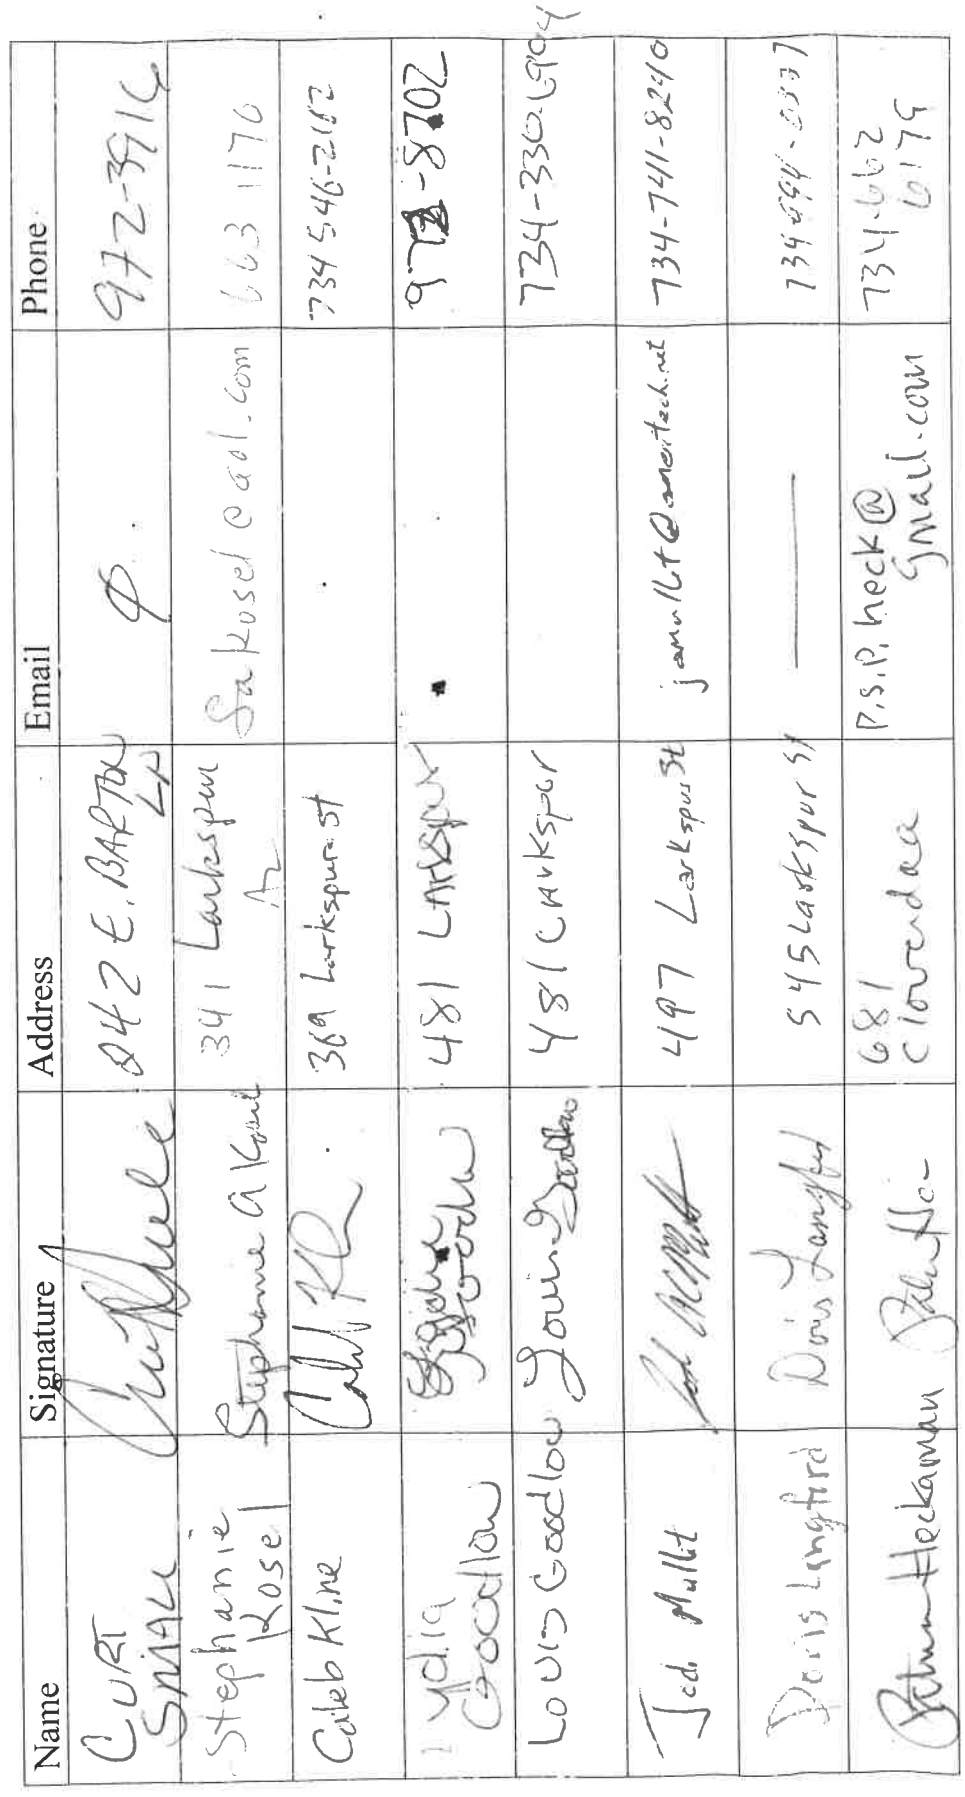 Name Signature Address Email Phone
CURT
SMALL
842 E. BARTON
LN
φ
972-3914
Stephanie
Kosel
Stephanie A Kosel
341 Larkspur
Sakosel@aol.com
663 1176
Caleb Kline
369 Larkspur st
734 546-2162
Lydia
Goodlow
Lydia
Goodlow
481 Larkspur
-8702
Louis Goodlow
Louis Goodlow
481 Larkspur
734-330-6904
Jodi Mullet
497 Larkspur St
734-741-8240
Doris Langford
Doris Langford
545 Larkspur St
Heckaman
681
P.S.P.heck@
gmail.com
734-662
6179